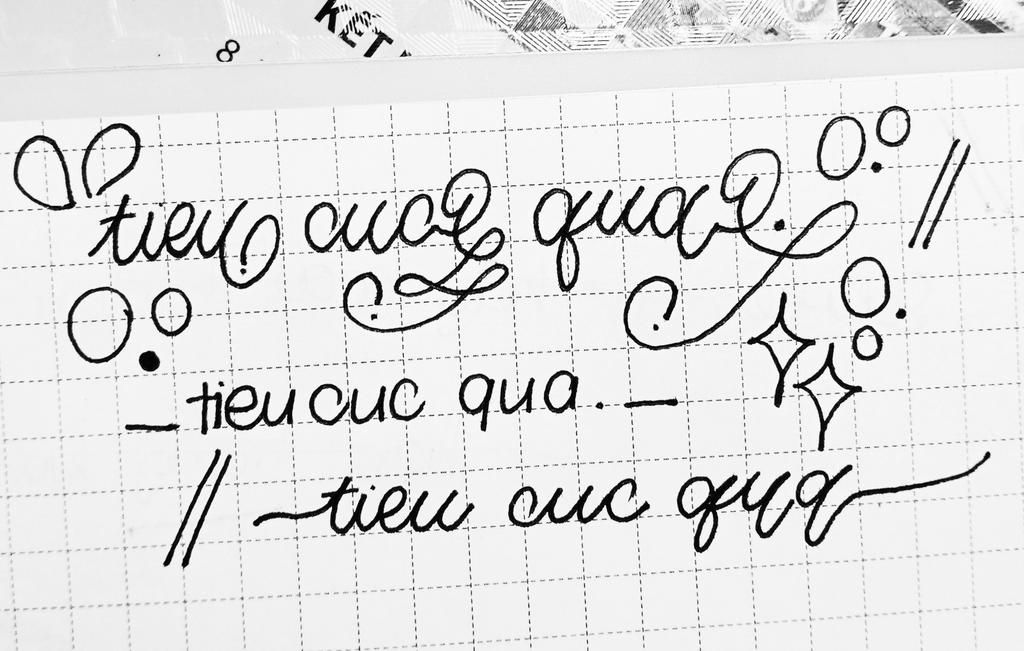 8
KET
tieu cuc qua.
_ tieu cuc qua. _
tieu cuc qua